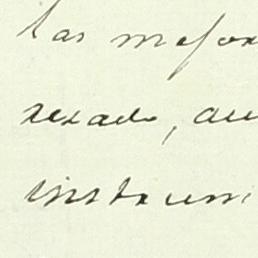 las mejor
xexado, au
instrum